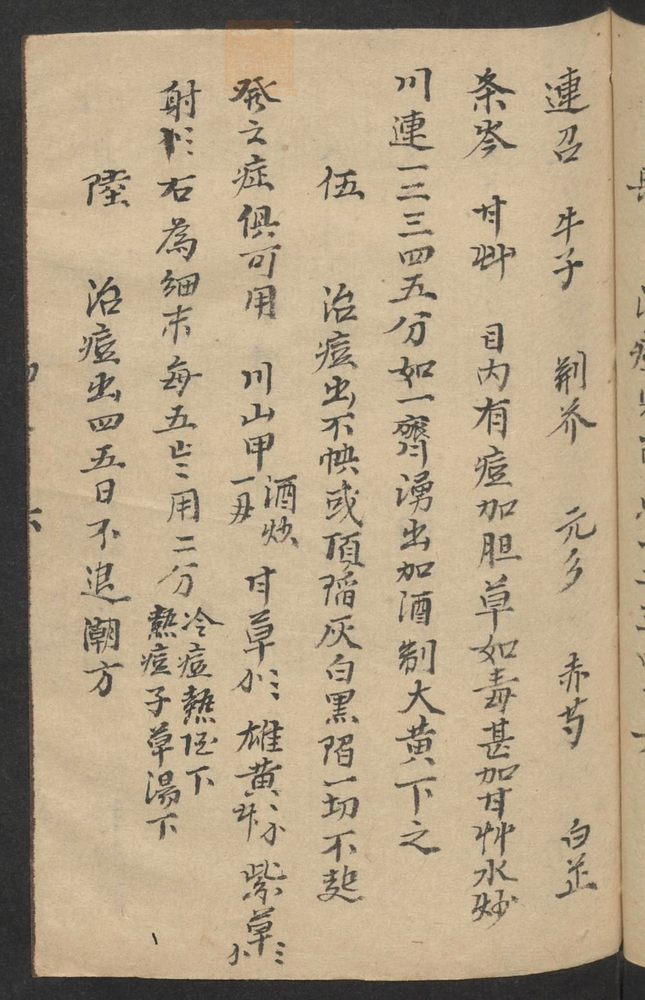 連召 牛子 荆芥 元参 赤芍 白芷
条芩 甘艸 目内有痘加胆草如毒甚加甘艸水炒
川連一二三四五分如一齊湧出加酒制大黄下之
伍 治痘出不快或頂陷灰白黑陷一切不起
發之症俱可用 川山甲 酒炒 甘草 雄黄 紫草
射 右為細末每五 用二分 冷痘熱酒下
熱痘子草湯下
陸 治痘出四五日不退潮方